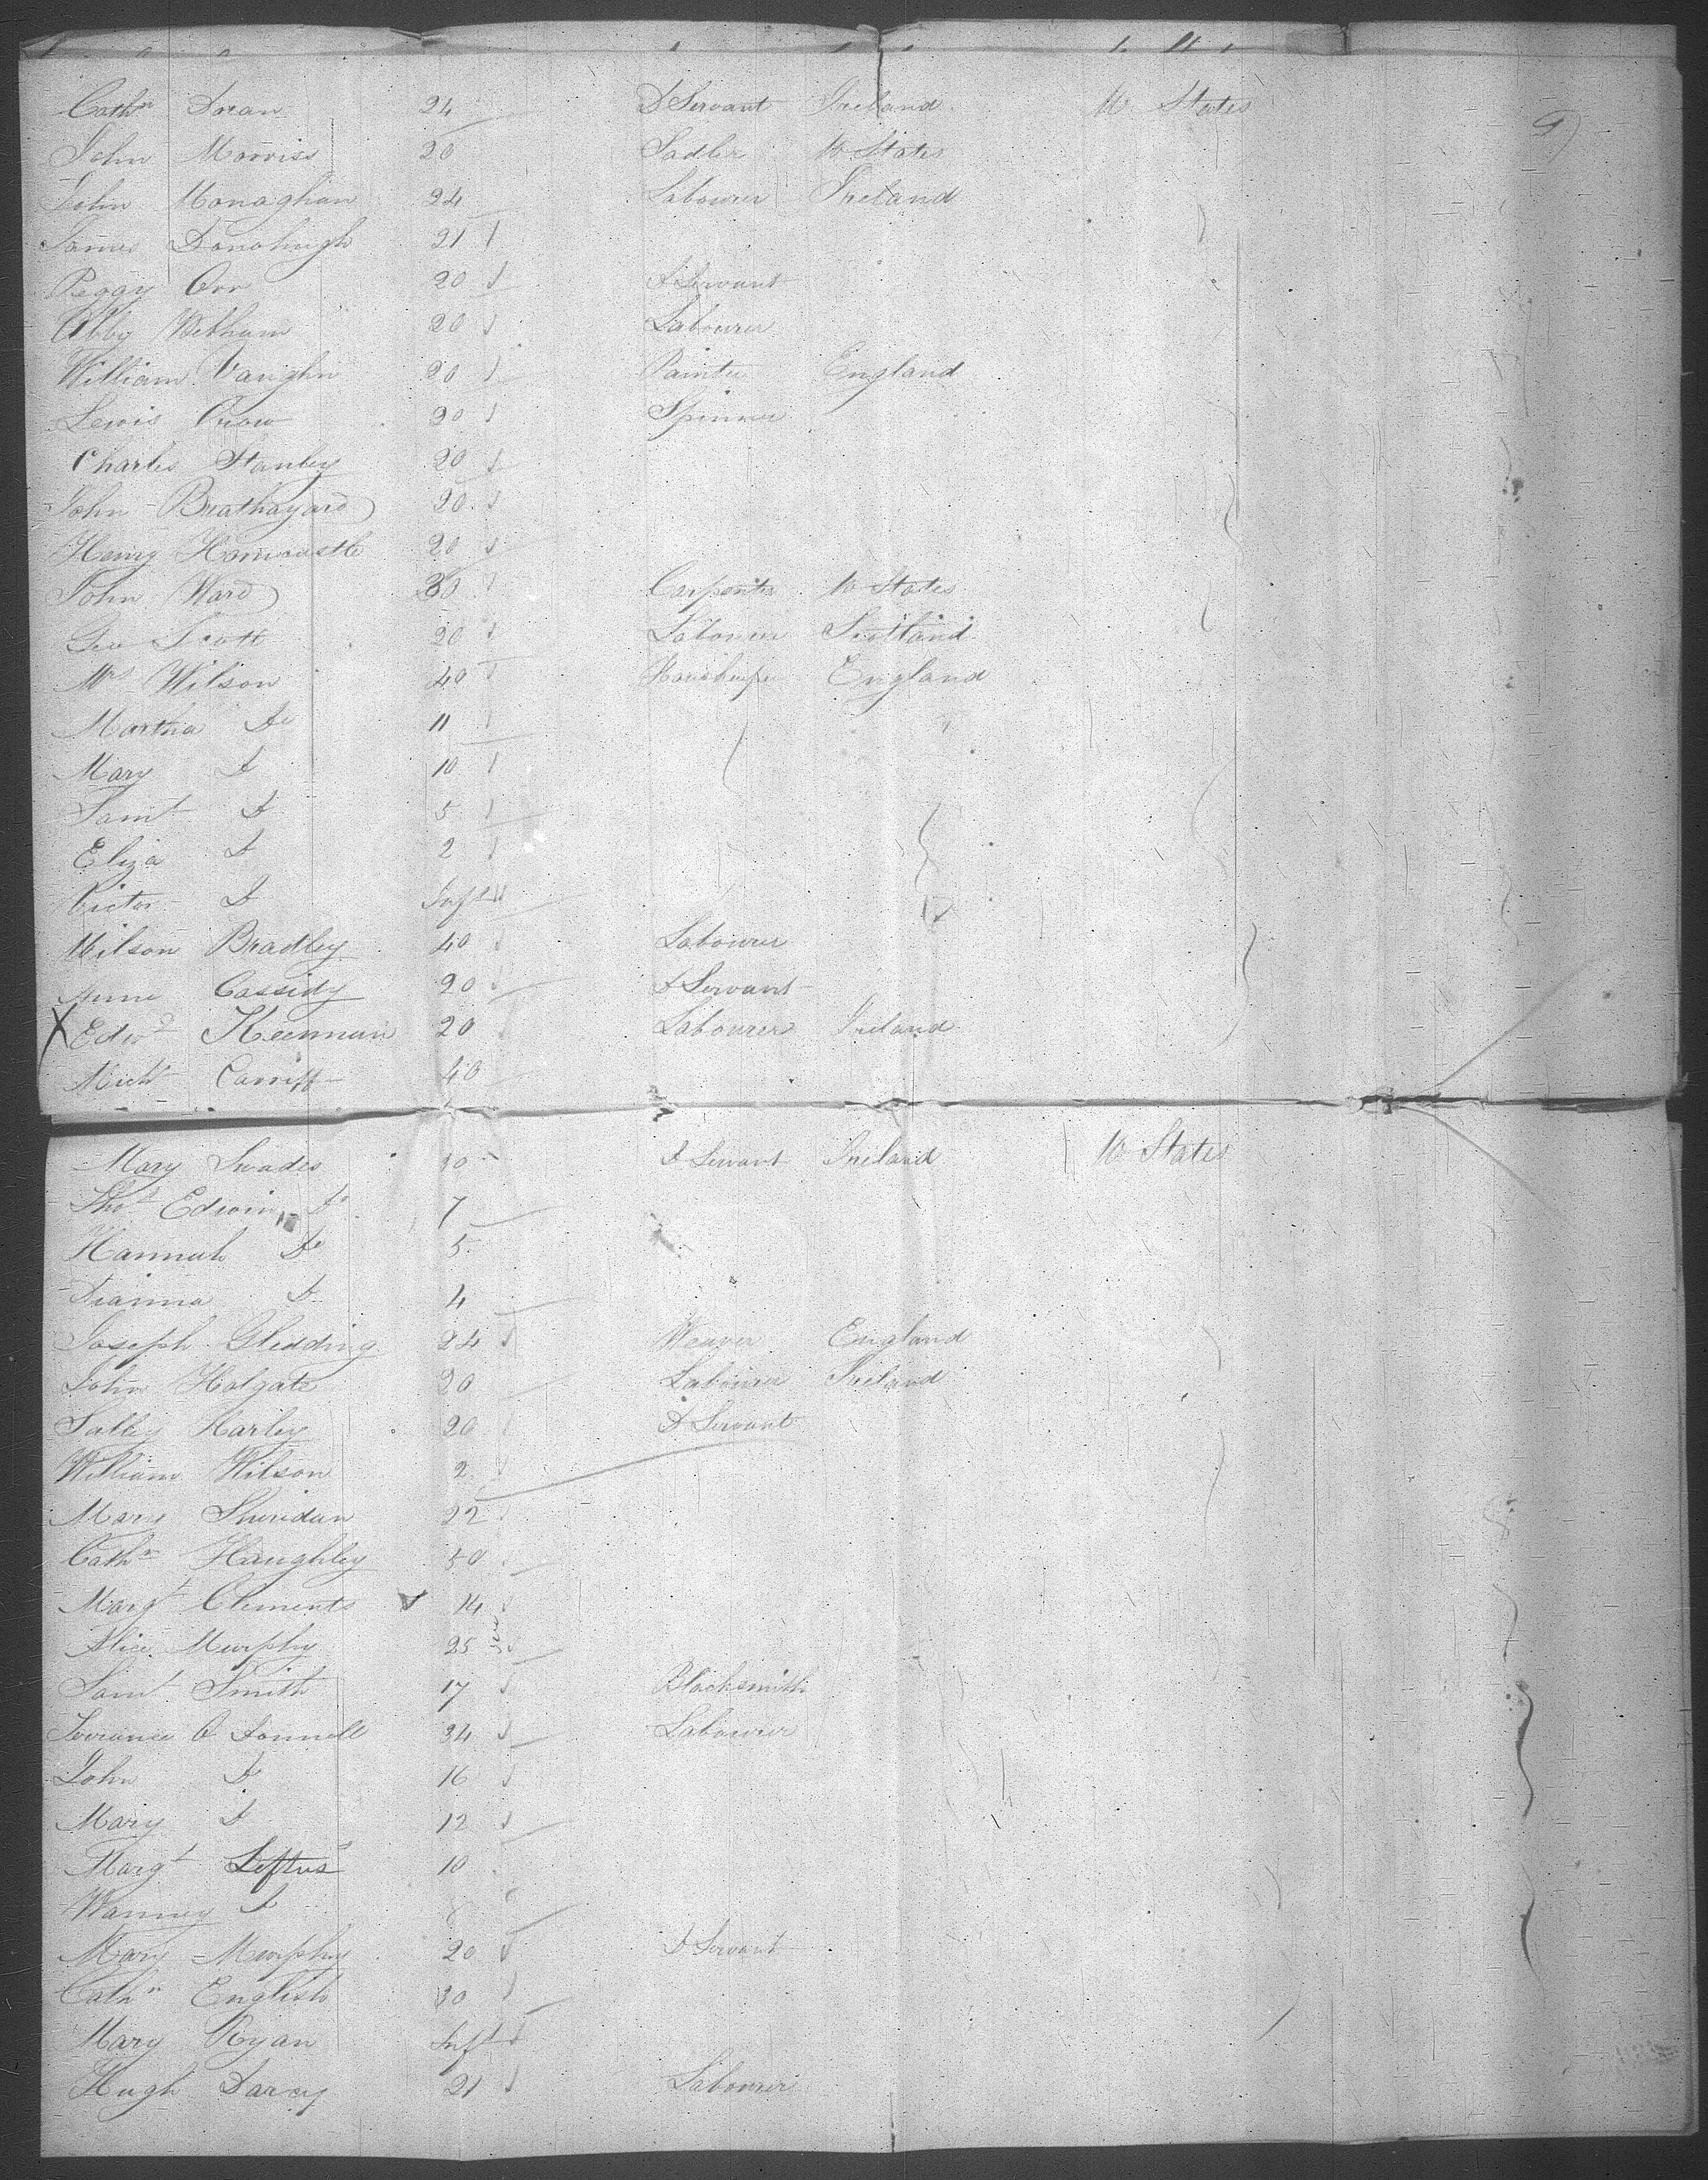 Cathn Doran 24 D Servant Ireland U States
John Morriss 20 Sadler U States
John Monaghan 24 Labourer Ireland
James Donohugh 21
Peggy Orr 20 D Servant
Abby Witham 20 Labourer
William Vaughn 20 Painter England
Lewis Crow 20 Spinner
Charles Stanley 20
John Brathayard 20
Henry Horncastle 20
John Ward 30 Carpenter U States
Geo Scott 20 Labourer Scotland
Mrs Wilson 40 Housekeeper England
Martha Do 11
Mary D 10
Saml D 5
Eliza D 2
Victor D Inft
Wilson Bradley 40 Labourer
Anne Cassidy 20 D Servant
X Edwd Keennan 20 Labourer Ireland
Michl Carriff 40
Mary Swades 10 D Servant Ireland U States
Thos Edwin Do 7
Hannah Do 5
Dianna D 4
Joseph Gledding 24 Weaver England
John Holgate 20 Labourer Ireland
Salley Harley 20 D Servant
William Wilson 2
Mary Sheridan 22
Cathn Haughley 50
Margt Clements 14
Alice Murphy 25
Saml Smith 17 Blacksmith
Terrance O Donnell 34 Labourer
John D 16
Mary D 12
Margt Loftus 10
Wanney D
Mary Murphy 20 D Servant
Cathn English 30
Mary Ryan Inft
Hugh Darcy 21 Labourer